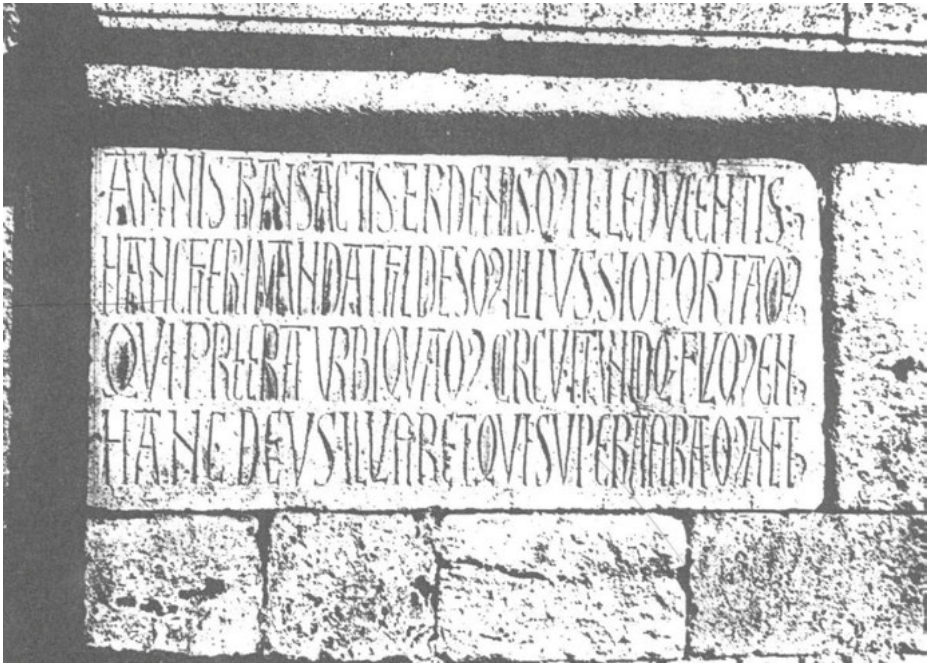 ANNIS TRANSACTIS TER DENIS MILLE DVCENTIS
HANC FIERI MANDAT FIDESMILI IVSSIO PORTAM
QVI PREERAT VRBI QVAM CIRCVIT VNDIQ FLVMEN
HANC DEVS ILVSTRET QVI SVPER ASTRA MANET